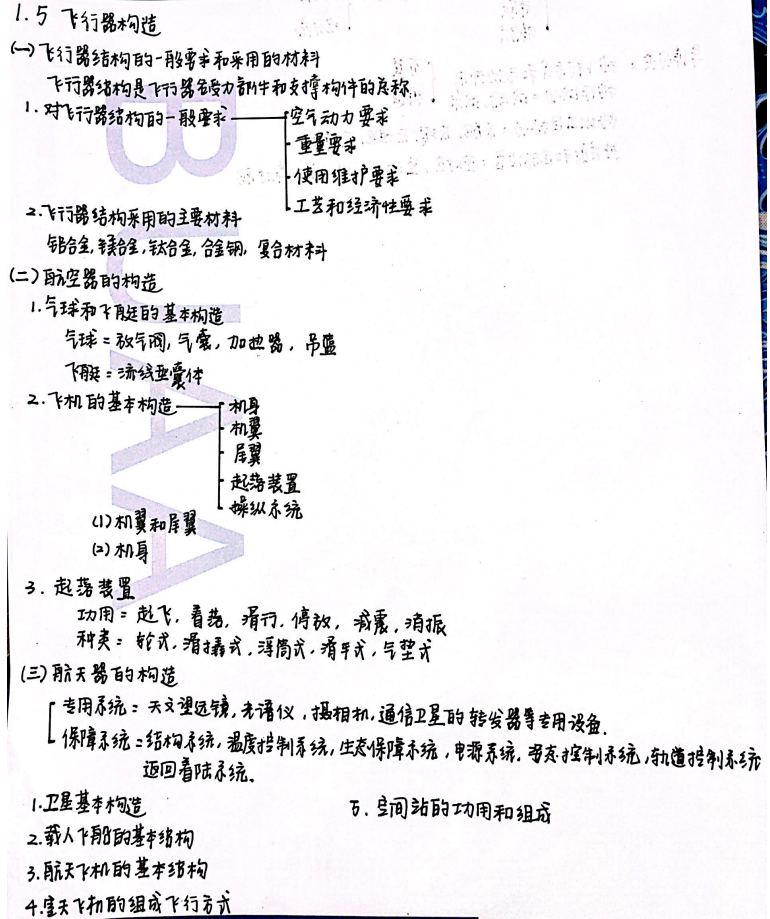 1.5 飞行器构造
(一)飞行器结构的一般要求和采用的材料
飞行器结构是飞行器各受力部件和支撑构件的总称.
1.对飞行器结构的一般要求 空气动力要求
重量要求
使用维护要求
工艺和经济性要求
2.飞行器结构采用的主要材料
铝合金,镁合金,钛合金,合金钢,复合材料
(二)航空器的构造
1.气球和飞艇的基本构造
气球:放气阀,气囊,加热器,吊篮
飞艇:流线型囊体
2.飞机的基本构造 机身
机翼
尾翼
起落装置
操纵系统
(1)机翼和尾翼
(2)机身
3.起落装置
功用:起飞,着落,滑行,停放,减震,消振
种类:轮式,滑撬式,浮筒式,滑平式,气垫式
(三)航天器的构造
专用系统:天文望远镜,光谱仪,摄相机,通信卫星的转发器等专用设备.
保障系统:结构系统,温度控制系统,生态保障系统,电源系统,姿态控制系统,轨道控制系统
返回着陆系统.
1.卫星基本构造 5.空间站的功用和组成
2.载人飞船的基本结构
3.航天飞机的基本结构
4.空天飞机的组成飞行方式
BUAA